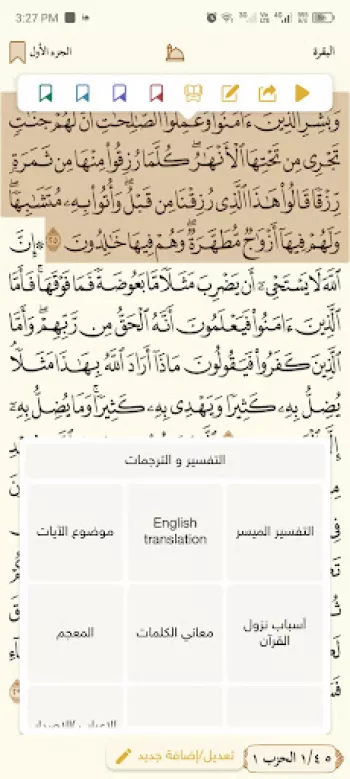 3:27 PM
البقرة
الجزء الأول
وَبَشِّرِ ٱلَّذِينَ ءَامَنُواْ وَعَمِلُواْ ٱلصَّٰلِحَٰتِ أَنَّ لَهُمۡ جَنَّٰتٖ
تَجۡرِي مِن تَحۡتِهَا ٱلۡأَنۡهَٰرُۖ كُلَّمَا رُزِقُواْ مِنۡهَا مِن ثَمَرَةٖ
رِّزۡقٗا قَالُواْ هَٰذَا ٱلَّذِي رُزِقۡنَا مِن قَبۡلُۖ وَأُتُواْ بِهِۦ مُتَشَٰبِهٗاۖ
وَلَهُمۡ فِيهَآ أَزۡوَٰجٞ مُّطَهَّرَةٞۖ وَهُمۡ فِيهَا خَٰلِدُونَ ٢٥ ۞ إِنَّ
ٱللَّهَ لَا يَسۡتَحۡيِۦٓ أَن يَضۡرِبَ مَثَلٗا مَّا بَعُوضَةٗ فَمَا فَوۡقَهَاۚ فَأَمَّا
ٱلَّذِينَ ءَامَنُواْ فَيَعۡلَمُونَ أَنَّهُ ٱلۡحَقُّ مِن رَّبِّهِمۡۖ وَأَمَّا
ٱلَّذِينَ كَفَرُواْ فَيَقُولُونَ مَاذَآ أَرَادَ ٱللَّهُ بِهَٰذَا مَثَلٗاۘ
يُضِلُّ بِهِۦ كَثِيرٗا وَيَهۡدِي بِهِۦ كَثِيرٗاۚ وَمَا يُضِلُّ بِهِۦٓ
التفسير و الترجمات
التفسير الميسر
English translation
موضوع الآيات
أسباب نزول القرآن
معاني الكلمات
المعجم
٤٥ /١ الحزب ١
تعديل/إضافة جديد